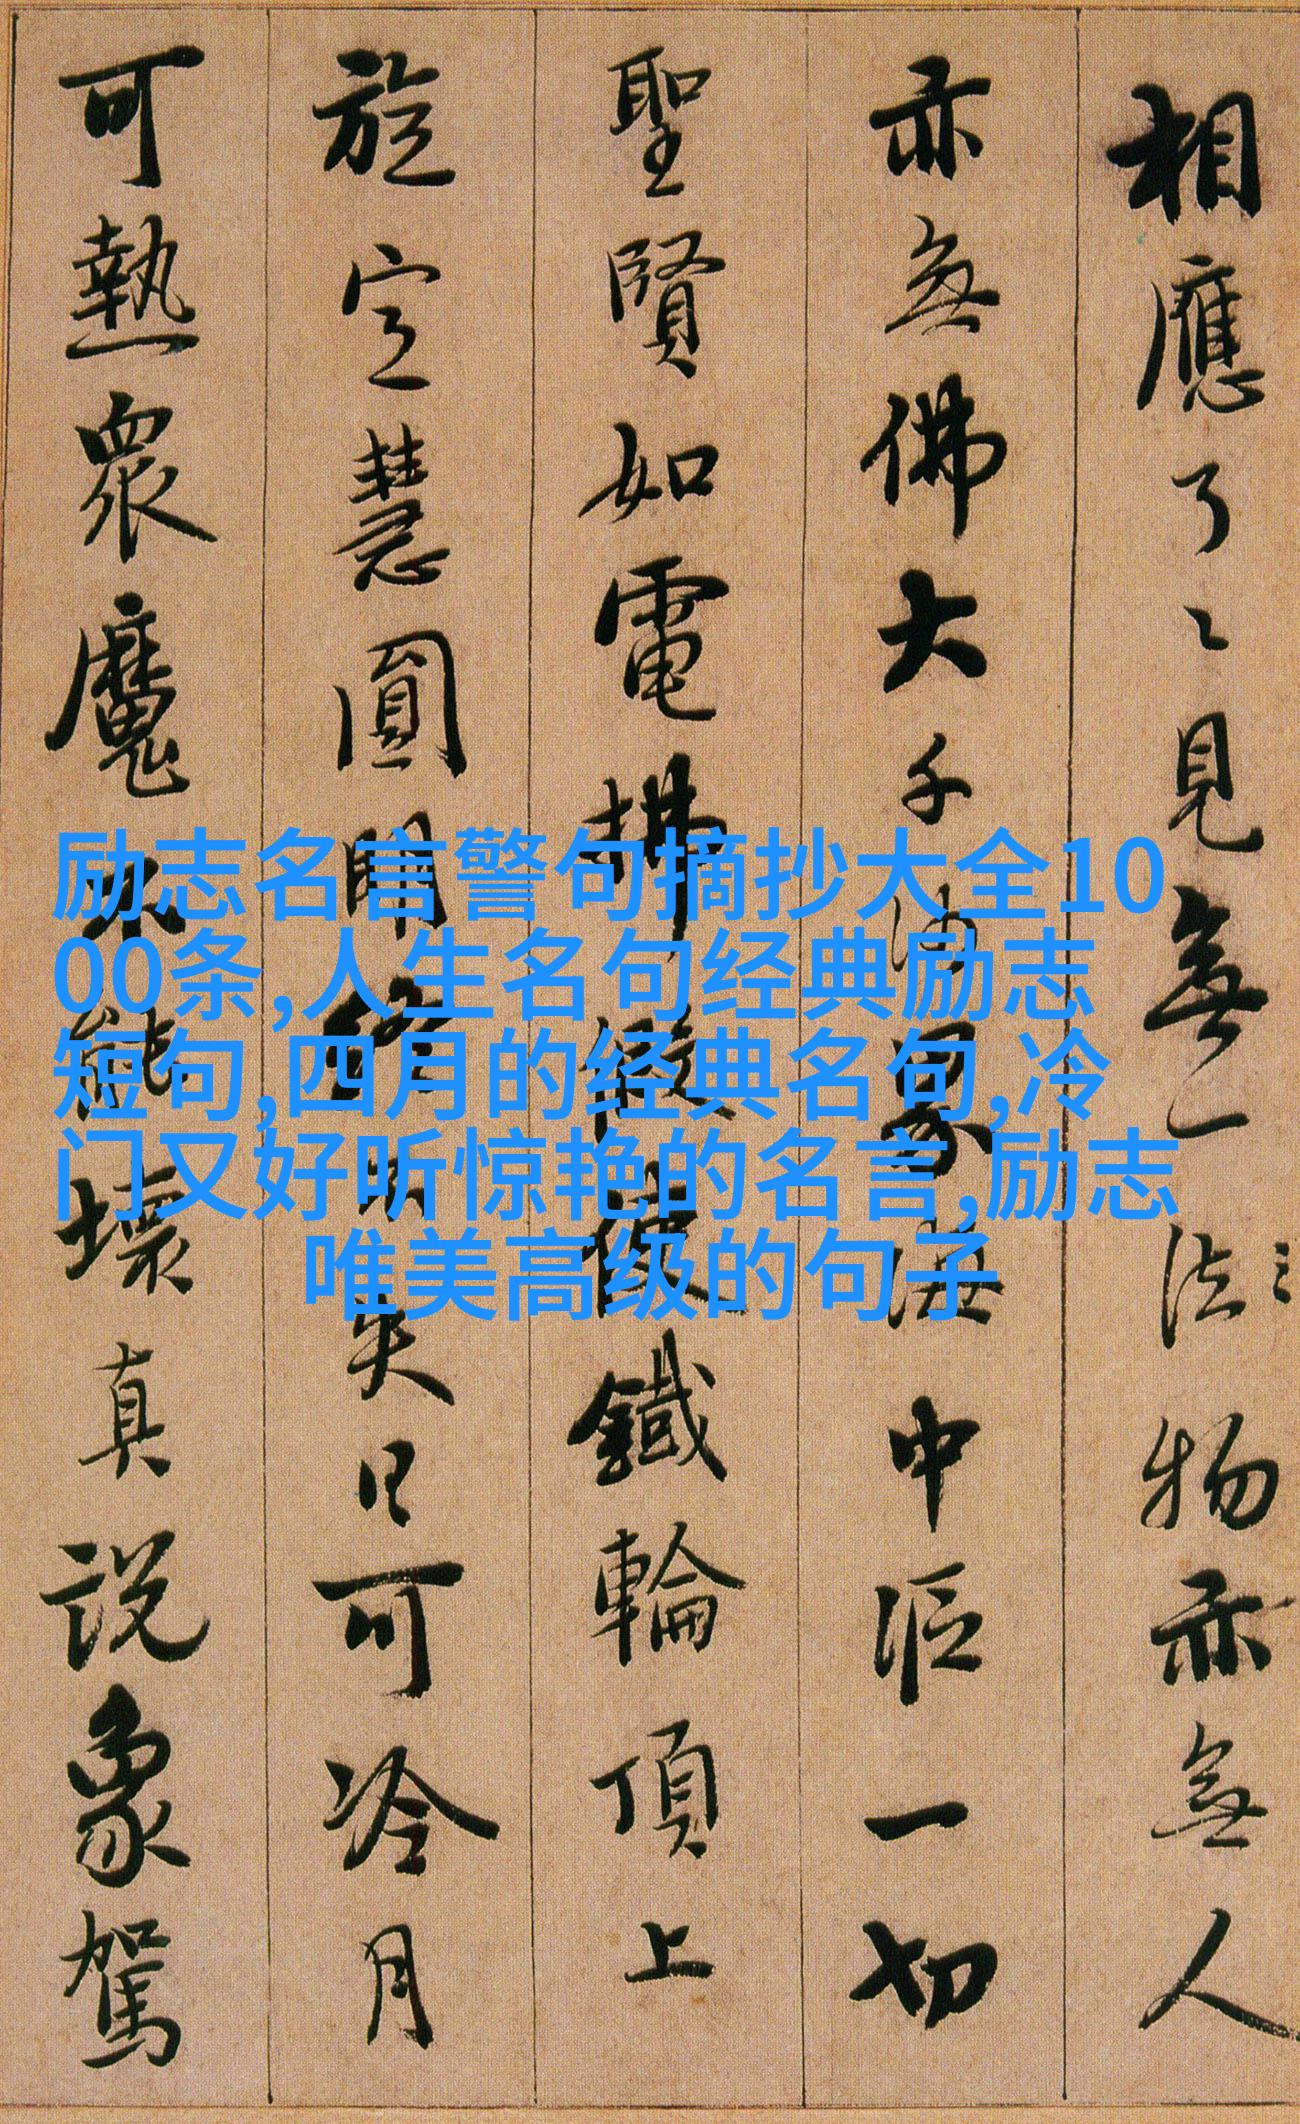 相應了〻見無一法物亦無人
亦無佛大千沙界海中漚一切
聖賢如電拂假使鐵輪頂上
旋定慧圓明終不失日可冷月
可熱衆魔不能壞真説象駕
励志名言警句摘抄大全10
00条,人生名句经典励志
短句,四月的经典名句,冷
门又好听惊艳的名言,励志
唯美高级的句子